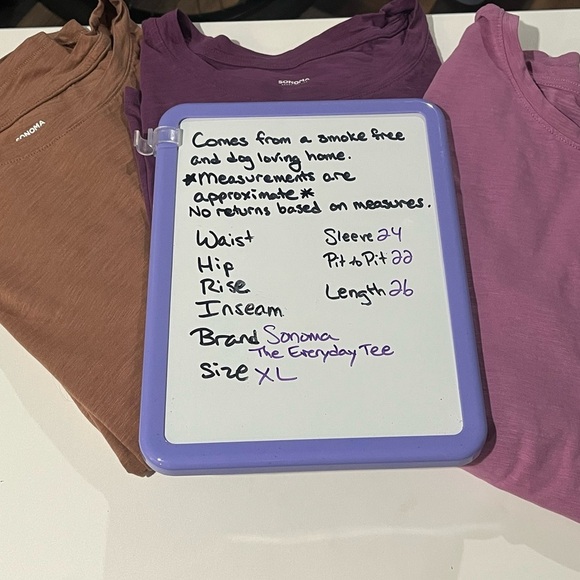 SONOMA
SONOMA
Comes from a smoke free
and dog loving home.
*Measurements are
approximate*
No returns based on measures.
Waist
Hip
Rise
Inseam
Sleeve 24
Pit to Pit 22
Length 26
Brand Sonoma
The Everyday Tee
Size XL